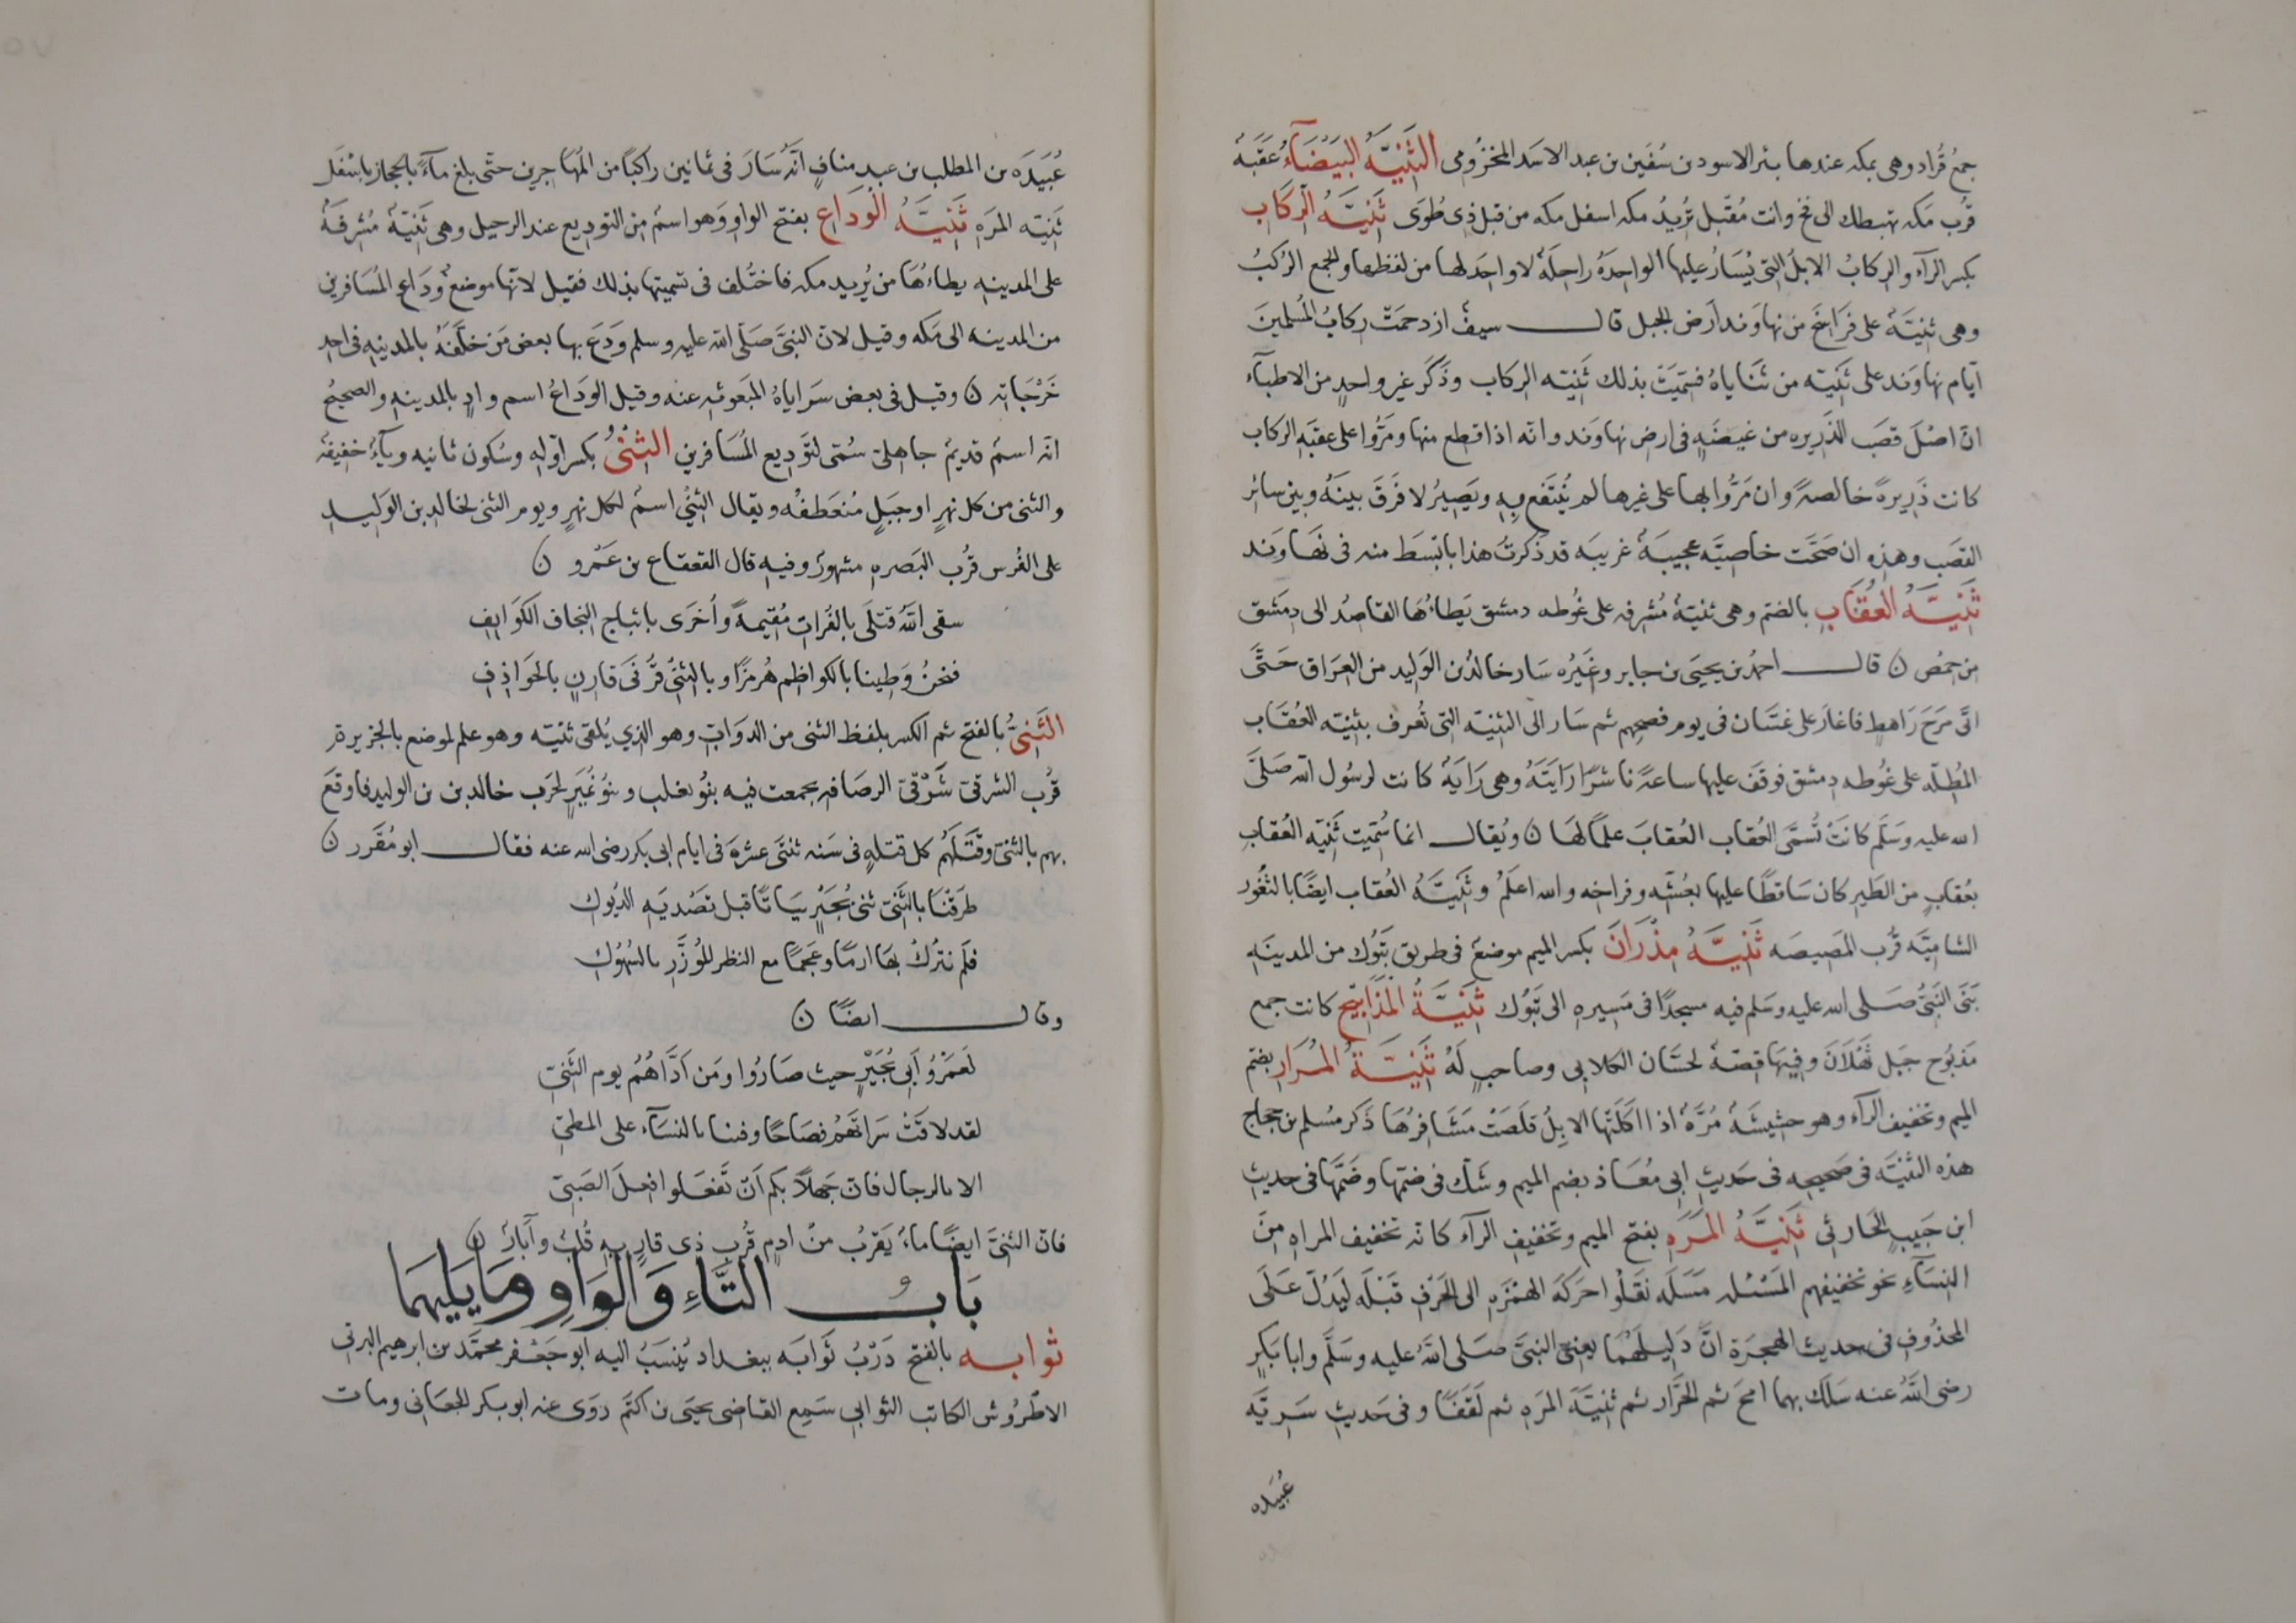 جمعُ قُراد وهى بمكه عندها بئر الاسود بن سُفين بن عبد الاسد المخزُومى الثَنِيَّةُ البَيضَآءُ عَقَبَةُ
قُرب مَكه تهبطك الى فخ وانت مُقبل تُريدُ مكه اسفل مكه من قبل ذى طُوَى ثَنِيَّةُ الرّكَابِ
بكسر الرآء والركابُ الابلُ التى يُسَارُ عليها الواحِدَهُ راحِلَةٌ لا واحِدَ لها من لفظها والجمع الرُكبُ
وهى ثنيَّةٌ على فَرَاسَخَ من نهاوَند اَرض الجبل قال سيفٌ ازدحَمَتْ رِكابُ المُسلمينَ
ايّام نهاوَند على ثَنِيَّه من ثَنَاياهُ فسمّيَتْ بذلك ثَنِيَّه الركاب وذَكَرَ غير واحدٍ من الاطبآء
انّ اصْلَ قصَب الذَّرِيره من غيضَةٍ فى ارض نهاوند وانه اذا قطع منها ومَرُّوا على عقبَهِ الركاب
كانت ذَرِيرةً خالصةً وان مَرُّوا بها على غيرها لم يُنْتَفع بِهِ ويَصِيرُ لا فَرقَ بينَهُ وبين سائر
القصَب وهذِهِ ان صَحَّت خاصيَّه عجيبَةٌ غريبَه قد ذَكرتُ هذا بابسَط منه فى نهَاوَند
ثَنِيَّةُ العُقَابِ بالضّم وهى ثنيّةٌ مُشرفه على غُوطه دمشق يَطاءُهَا القاصدُ الى دِمَشق
من حِمْص ن قال احمدُ بن يحيَى بن جابر وغَيرُه سَار خالدُ بن الوَليد من العِرَاق حَتَّى
اتَى مَرَج رَاهطٍ فاغارَ على غسَّان فى يوم فصحِهم ثم سَار الى الثنيَّه التى تُعرف بثنيّه العُقَاب
المُطِلّه على غُوطه دِمشق فوقفَ عليها ساعةً ناشرًا رَايَتَهُ وهى رَايَةٌ كانت لرسُول الله صَلَّى
الله عليه وسَلّم كانَتْ تُسمَّى العُقاب العُقابَ علمًا لهَا ن ويُقال انما سُمّيت ثَنيّه العُقابِ
بعُقابٍ من الطَير كان سَاقطًا عليها بعُشّه وفراخه والله اعلَم وثَنيَّةُ العُقاب ايضًا بالثغُور
الشامِيَّه قُرب المَصيصَه ثَنِيَّةُ مِذْرَانَ بكسر الميم موضعٌ فى طريق تَبُوك من المدينَهِ
بَنَى النَبىُّ صَلى الله عليه وسَلم فيه مسجدًا فى مَسِيرهِ الى تَبُوك ثَنِيَّةُ المَذَابِيح كانت جمع
مَذبُوح جَبل ثَهْلَانَ وفِيهَا قِصّةٌ لحسَّان الكلابى وصاحبٍ لَهُ ثَنِيَّةُ المُرَار بضَم
الميم وتخفيف الرآء وهو حشِيشَةٌ مُرَّةٌ اذا اكَلَتْها الابِلُ قَلَصَتْ مَشَافِرُهَا ذَكر مُسلم بن حجاج
هذه الثنيَّه فى صَحيحِه فى حَديثِ ابى مُعَاذ بضم الميم وشَكّ فى ضمّها وضَمَّها فى حديثِ
ابن حَبيب الحَارثى ثَنِيَّةُ المَرَهِ بفتح الميم وتخفيف الرآء كانه تخفيف المراهِ مِنَ
النِسَآءِ نحو تخفيفهم المَسْئله مَسَلَه نقَلُوا حَرَكَه الهمْزَهِ الى الحَرْفِ قَبْلَه لِيَدُلّ عَلَى
المحذُوفِ فى حديث الهجرَة انَّ دَلِيلَهُمَا يعنى النبىَّ صَلى اللهُ عليه وسَلّم وابا بَكرٍ
رضى اللهُ عنه سَلَك بهما امحَ ثم الخَرّار ثم ثنِيَّةَ المَرَه ثم لَقَفًا وفى حَديثِ سَرِيَّه
عُبَيده
عُبَيدَه بن المطلب بن عبد منافٍ اَنّهُ سَارَ فى ثمانين راكبًا من المُهَاجرين حتّى بلغ مآءً بالحجاز باسْفَل
ثَنِيَّه المَرَهِ ثَنِيَّةُ الوَدَاع بفتح الواو وَهو اسمٌ مِن التوديع عند الرحيل وهى ثَنِيّةٌ مُشرفَةٌ
على المدينهِ يطاءُهَا من يُريد مكه فاختُلف فى تسميتها بذلك فقيل لانّها موضعُ وَدَاعِ المُسَافرين
من المدينه الى مَكه وقيل لانّ النبىَّ صَلّى الله عليه وسلم وَدَعَ بها بعضَ مَن خلَّفَهُ بالمدينهِ فى احدِ
خَرْجَاتِه ن وقيل فى بعض سَرَاياهُ المَبعُوثهِ عنه وقيل الوَدَاعُ اسم وادٍ بالمدينهِ والصحيحُ
انّه اسمٌ قديمٌ جاهلىّ سُمّى لتوديع المُسَافرين الثِنْىُ بكسر اوّلهِ وسُكون ثانيه ويآءٌ خفيفةٌ
والثنى من كل نهرٍ او جبَلٍ مُنعَطفُه ويقال الثِنْىُ اسمٌ لكل نهرٍ ويوم الثنى لخالد بن الوَليد
على الفُرس قُرب البَصره مشهورٌ وفيهِ قال القعقاع بن عَمْرو ن
سقى اللهُ قتلَى بالفُرات مُقيمةً وأُخرَى باثباج النجاف الكَوَانِفِ
فنحنُ وَطِينا بالكواظم هُرمُزًا وبالثِنْى قَرْنَى قارِنٍ بالحَوَاذِفِ
الثَنِىُّ بالفتح ثم الكسر بلفظ الثنى من الدوَابّ وهو الذى يُلقى ثنيّه وهو علم لموضع بالجزيرة
قُرب الشرقىّ شَرْقىّ الرصَافه تجمعت فيه بنُو تغلب وبنُو بُجَيرٍ لحَرب خالد بن بن الوليد فاوقَعَ
بهم بالثنىّ وقَتَلَهُم كل قتلهٍ فى سَنه ثنتَى عشرَه فى ايام ابى بكر رضى الله عنه فقال ابو مُقَّرر ن
طرَقْنا بالثَنِىّ بَنى بُجَيْرٍ بَيَاتًا قبل تصْديَهِ الديُوكِ
فلَم نترُكْ بهَا ارمًا وعَجمًا مع النظر المُوَزَّرِ بالسُهُوكِ
وقال ايضًا ن
لَعَمْرُو أَبى بُجَيْرٍ حيث صَارُوا ومَن آذَاهُمُ يوم الثَنِىّ
لقد لاقَتْ سَراتهُم فِضَاحًا وفينا بالنسَآء على المطىّ
الا بالرجال فانّ جَهلاً بكم اَن تَفعَلوا فعلَ الصَبىّ
فان الثنىّ ايضًا مآءٌ يَقربُ منْ ادم قُرب ذى قارٍ بهِ قُلُبٌ وآبارٌ ن
بَاب الثَّاءِ وَالوَاوِ ومَايَليهَمَا
ثوابه بالفتح دَرْبُ ثَوابَه ببغداد يُنسَبُ اليه ابو جَعْفر محمّد بن ابرهيم البرتى
الاطرُوش الكاتب الثوابى سَمِع القاضى يحيَى بن اكثم رَوَى عنه ابو بكر الجعابى ومات